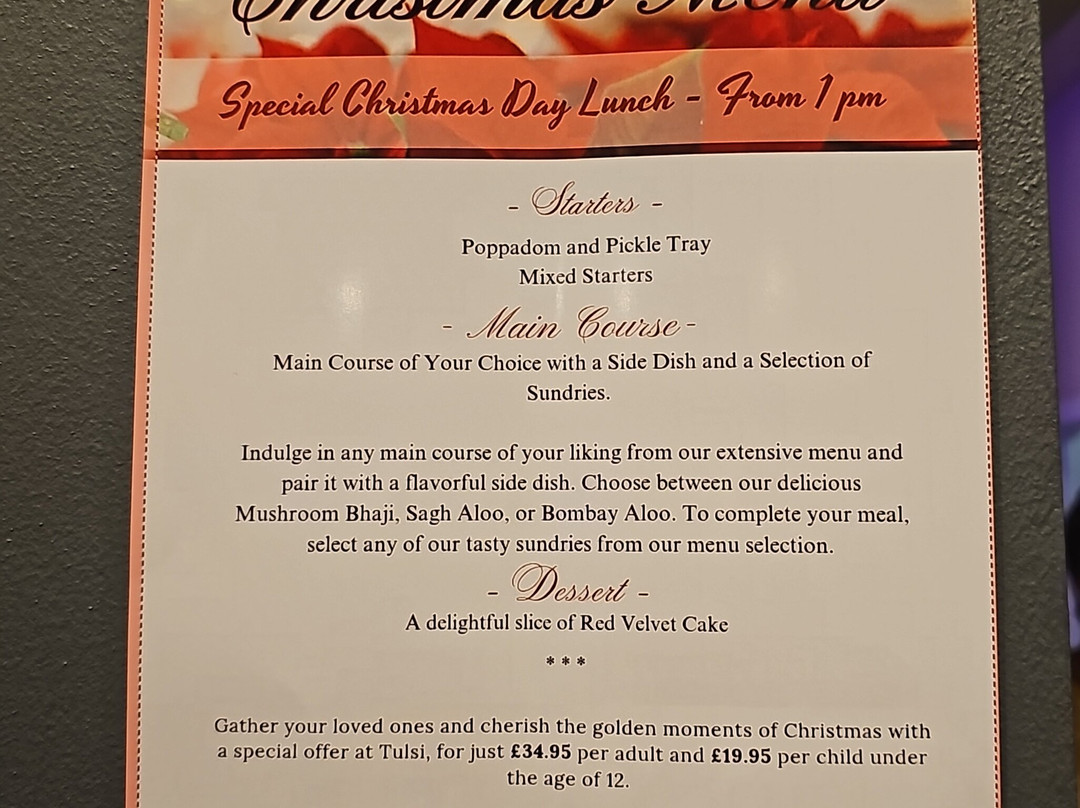 Christmas Menu
Special Christmas Day Lunch - From 1 pm
- Starters -
Poppadom and Pickle Tray
Mixed Starters
- Main Course -
Main Course of Your Choice with a Side Dish and a Selection of
Sundries.
Indulge in any main course of your liking from our extensive menu and
pair it with a flavorful side dish. Choose between our delicious
Mushroom Bhaji, Sagh Aloo, or Bombay Aloo. To complete your meal,
select any of our tasty sundries from our menu selection.
- Dessert -
A delightful slice of Red Velvet Cake
* * *
Gather your loved ones and cherish the golden moments of Christmas with
a special offer at Tulsi, for just £34.95 per adult and £19.95 per child under
the age of 12.